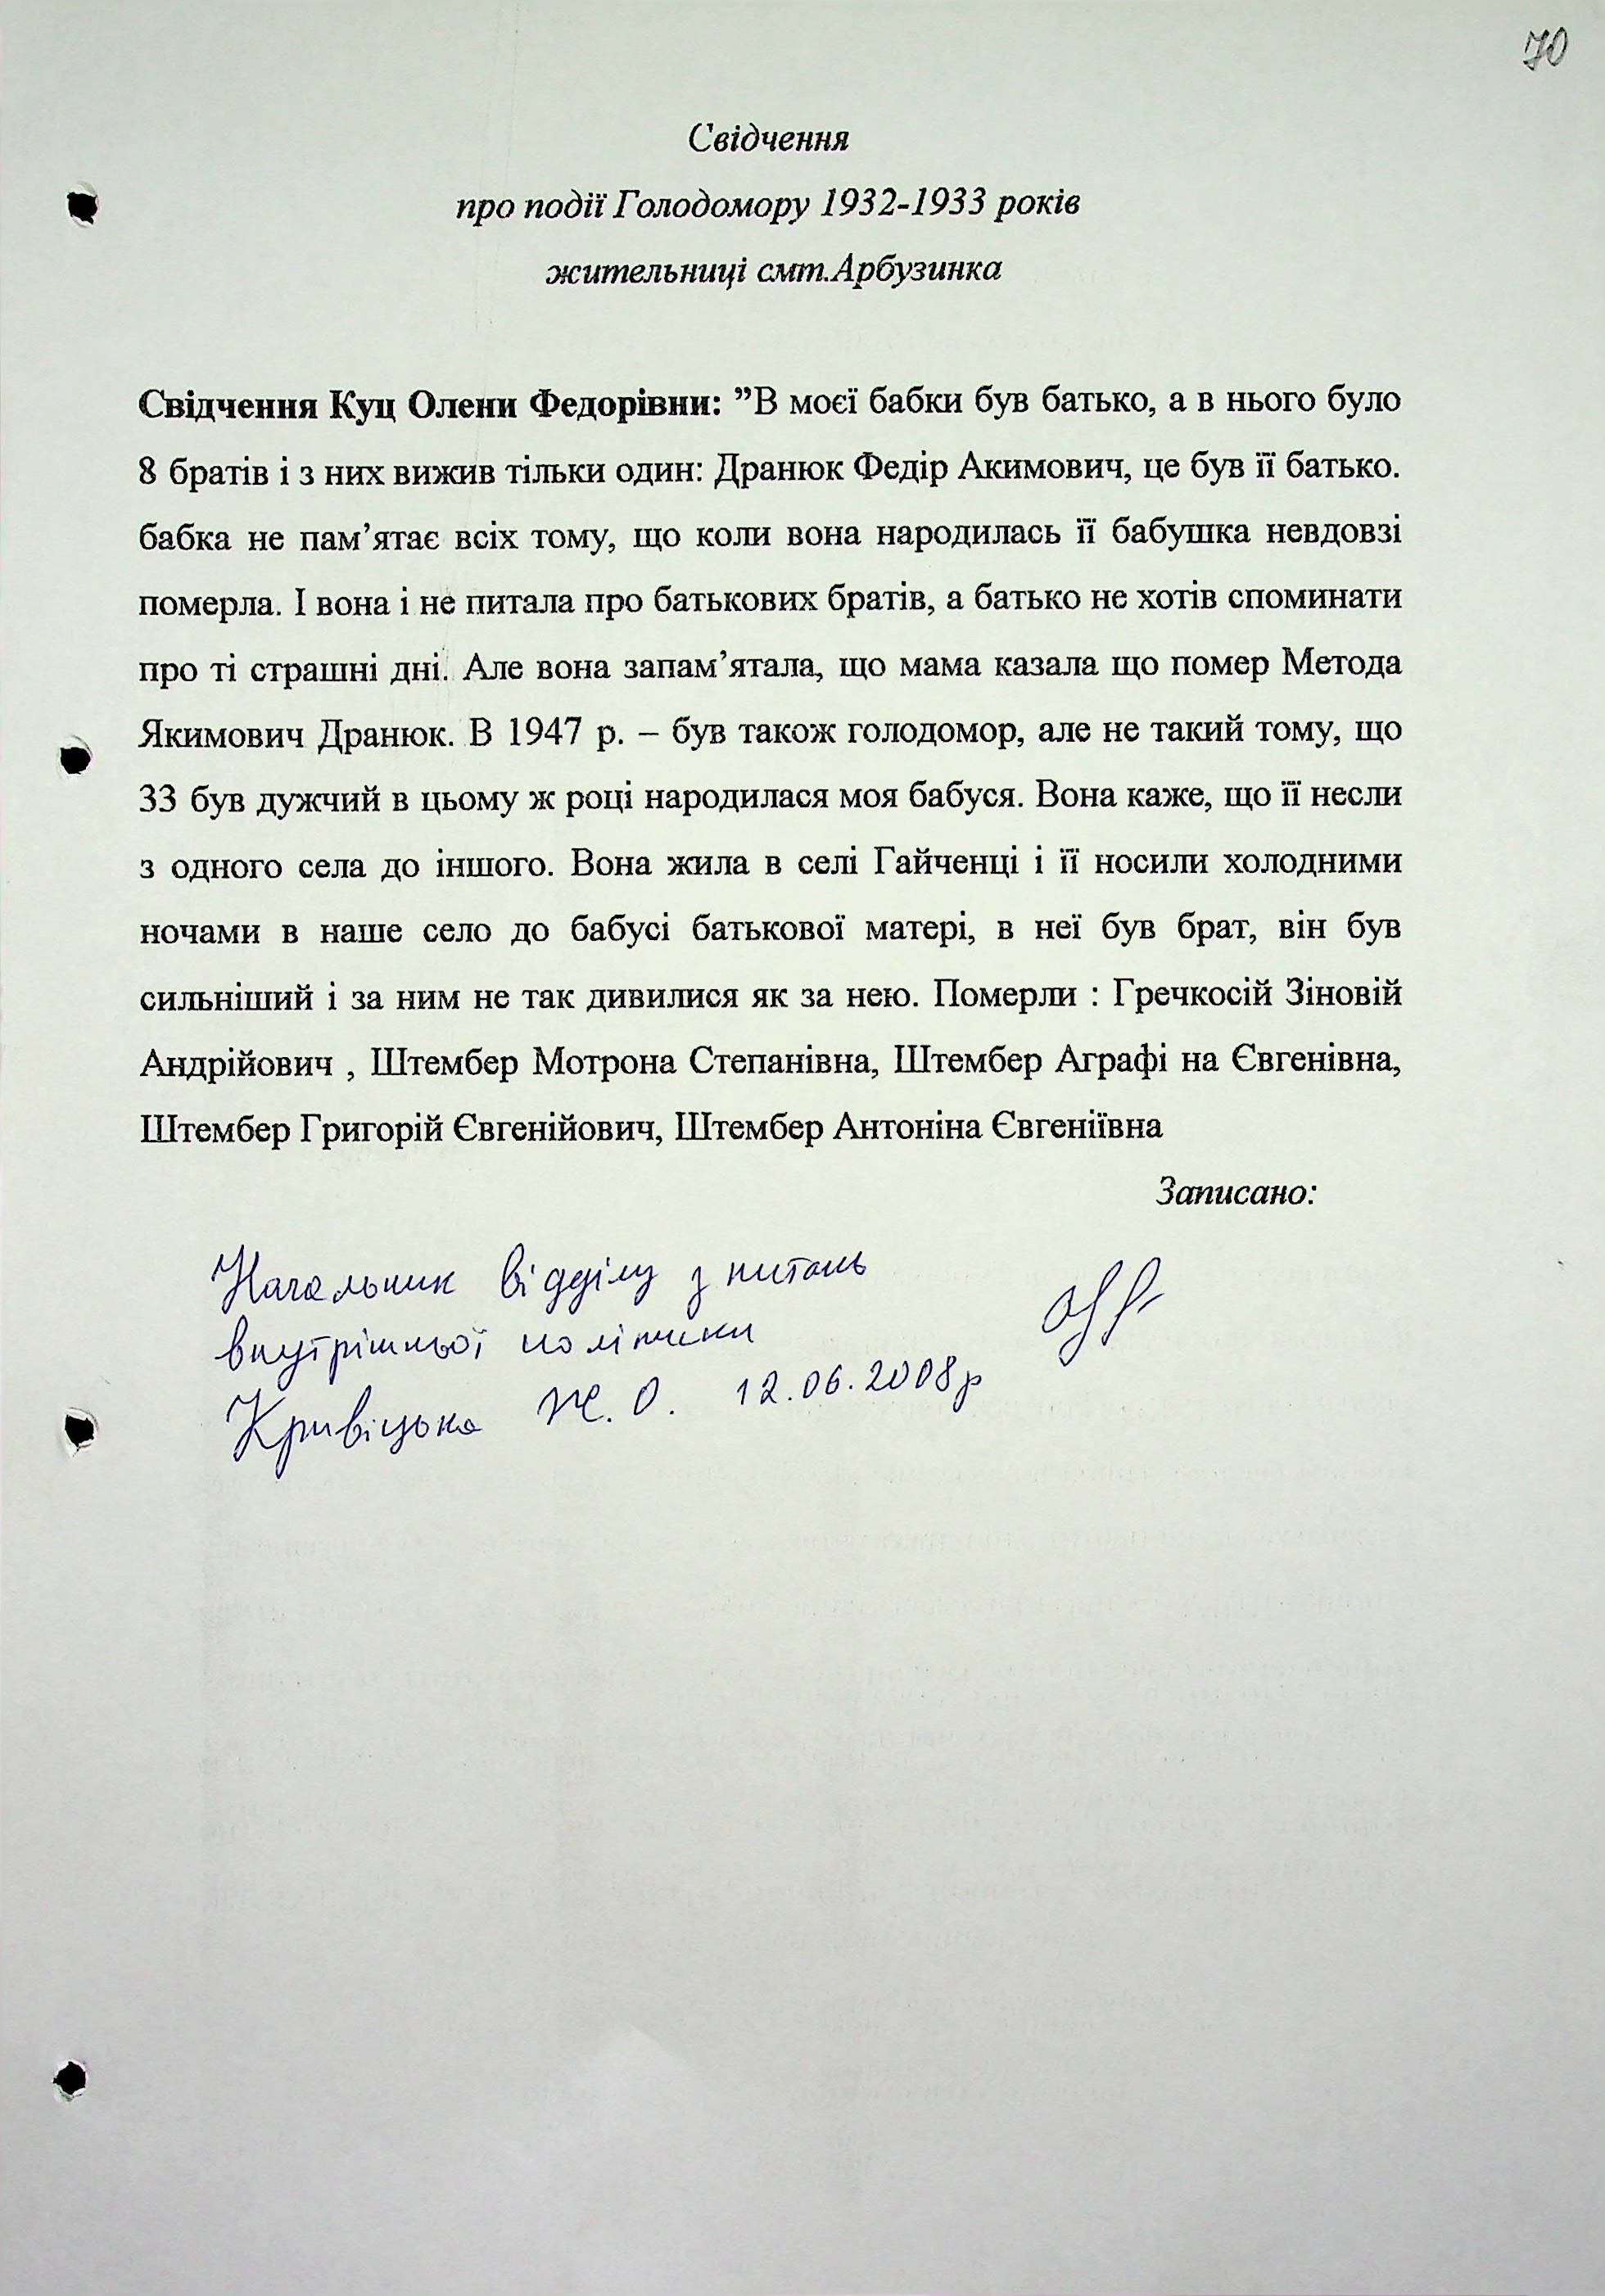 70
Свідчення
про події Голодомору 1932-1933 років
жительниці смт.Арбузинка
Свідчення Куц Олени Федорівни: ”В моєї бабки був батько, а в нього було
8 братів і з них вижив тільки один: Дранюк Федір Акимович, це був її батько.
бабка не пам’ятає всіх тому, що коли вона народилась її бабушка невдовзі
померла. І вона і не питала про батькових братів, а батько не хотів споминати
про ті страшні дні. Але вона запам’ятала, що мама казала що помер Метода
Якимович Дранюк. В 1947 р. – був також голодомор, але не такий тому, що
33 був дужчий в цьому ж році народилася моя бабуся. Вона каже, що її несли
з одного села до іншого. Вона жила в селі Гайченці і її носили холодними
ночами в наше село до бабусі батькової матері, в неї був брат, він був
сильніший і за ним не так дивилися як за нею. Померли : Гречкосій Зіновій
Андрійович , Штембер Мотрона Степанівна, Штембер Аграфі на Євгенівна,
Штембер Григорій Євгенійович, Штембер Антоніна Євгеніївна
Записано:
Начальник відділу з питань
внутрішньої політики
Кривіцька Ж. О. 12.06.2008р